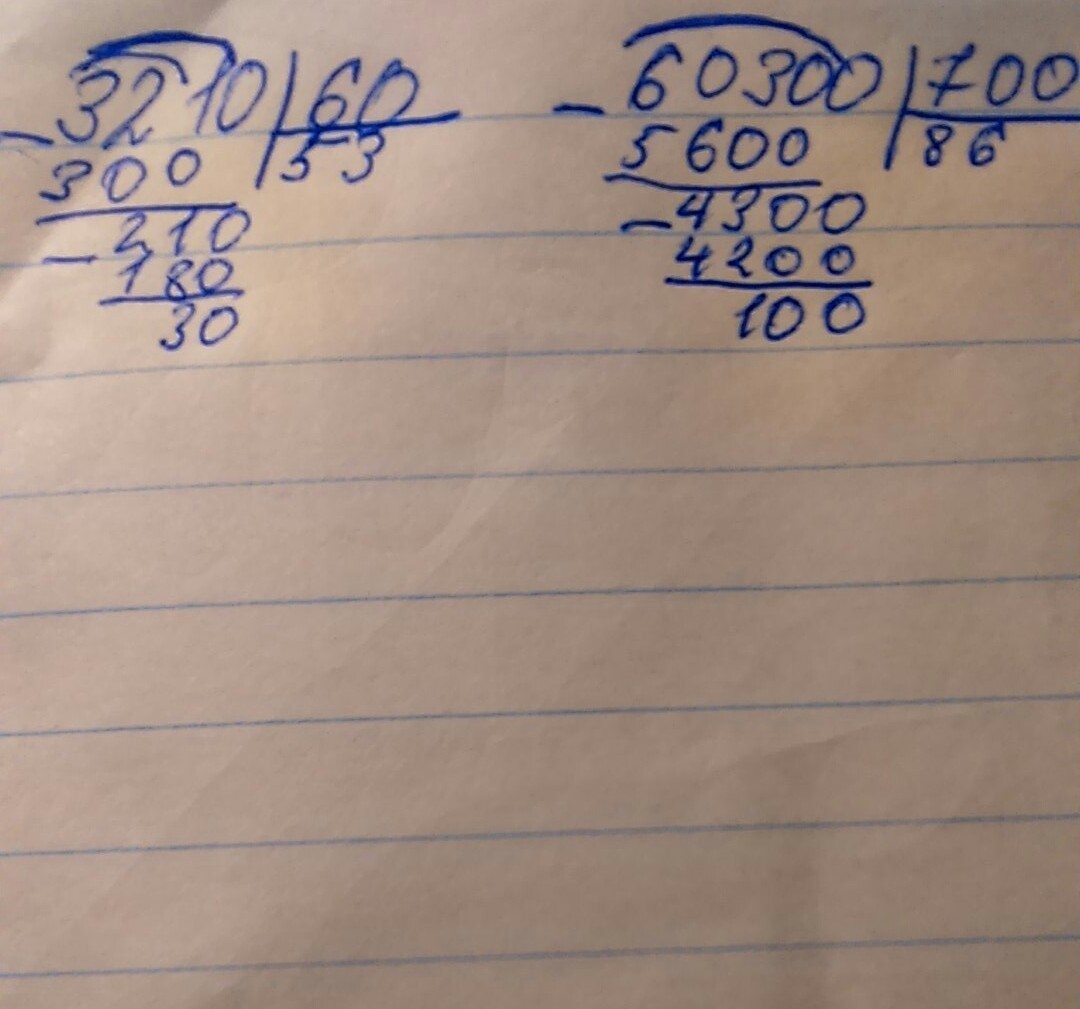 - 3210 | 60
300 | 53
- 210
180
30
- 60300 | 700
5600 | 86
- 4300
4200
100